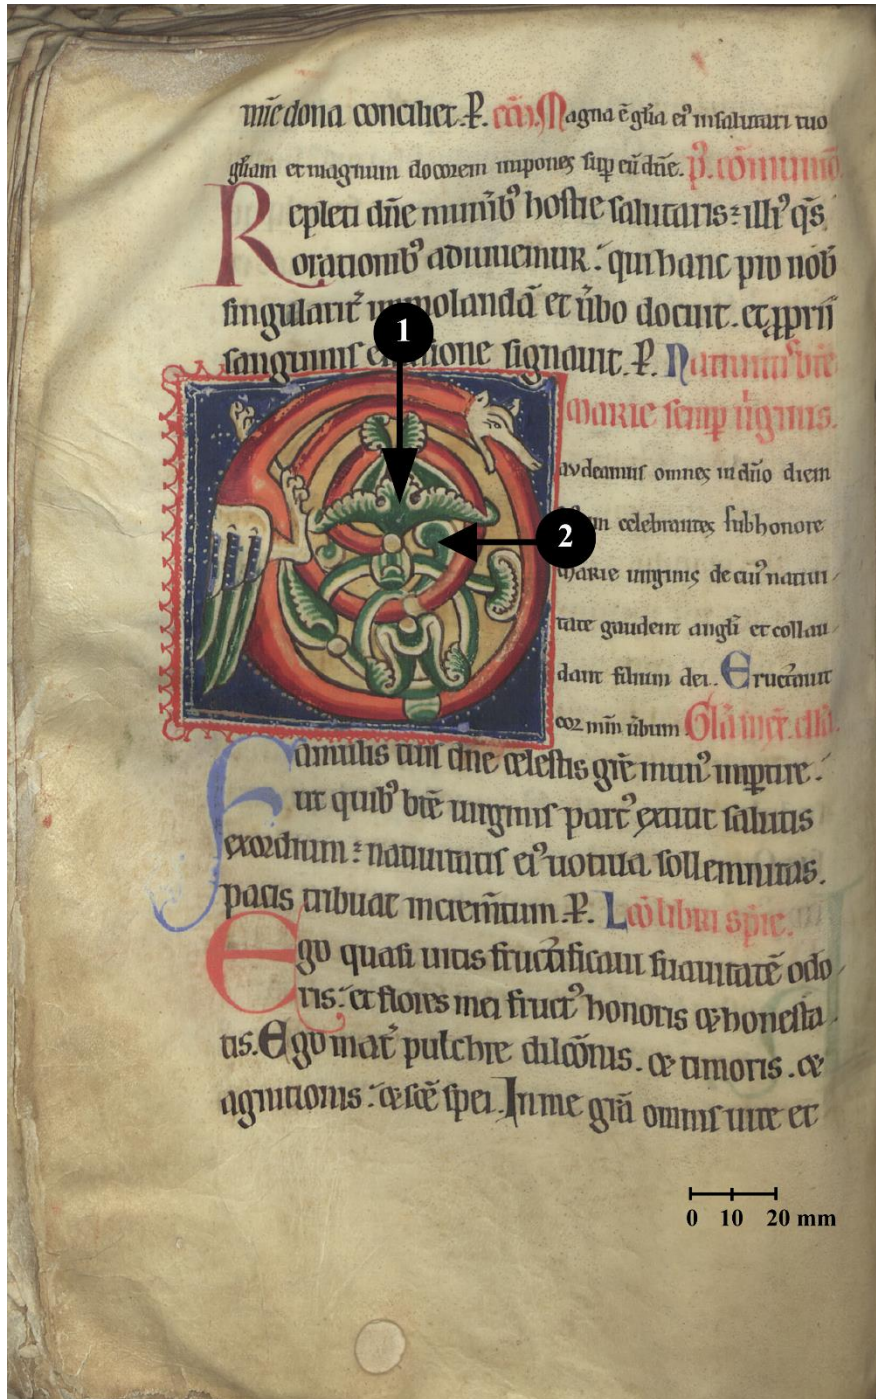 m̅ie dona conciliet. P. co̅m̅. Magna e̅ gl̅ia ei᾽ in salutari tuo
gl̅iam et magnum decorem impones sup eu̅ dn̅e. p̅. co̅munio̅
Repleti dn̅e munib᾽ hostie salutaris: illi᾽ q̅s
orationib᾽ adiuuemur: qui hanc pro nob̅
singularit̅ immolanda̅ et u̅bo docuit. et pprii
sanguinis signauit. P. Natiuitas be̅
1
marie semp u̅ginis.
audeamus omnes in dn̅o diem
celebrantes sub honore
2
marie uirginis de cui᾽ natiui
tate gaudent angl̅i et collau
dant filium dei. Eructauit
cor m̅m u̅bum Gl̅a
Famulis tuis dn̅e celestis gr̅e mun᾽ impertire:
ut quib᾽ be̅ uirginis part᾽ extitit salutis
exordium: natiuitatis ei᾽ uotiua sollemnitas.
pacis tribuat increm̅tum. P. Lc̅o libri sp̅ie.
Ego quasi uitis fructificaui suauitate̅ odo
ris: et flores mei fruct᾽ honoris et honesta
tis. Ego mat̅ pulchre dilco̅nis. et timoris. et
agnitionis: et sc̅e spei. In me gr̅a omnis uite et
0 10 20 mm